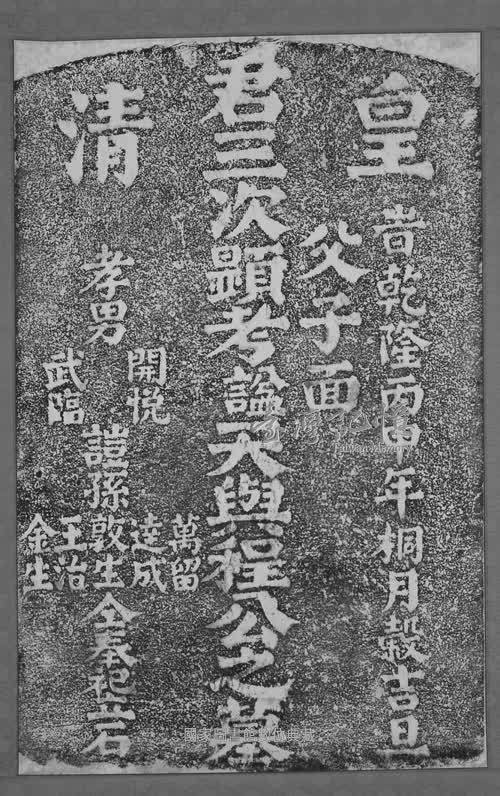 皇
清
旹乾隆丙申年桐月穀吉旦
父子面
君三次顕考諡天與程公之墓
孝男
開悅
武臨
孫
萬留
達成
敦生
王治
金生
仝奉祀立石
臺灣記憶
國家圖書館數位典藏